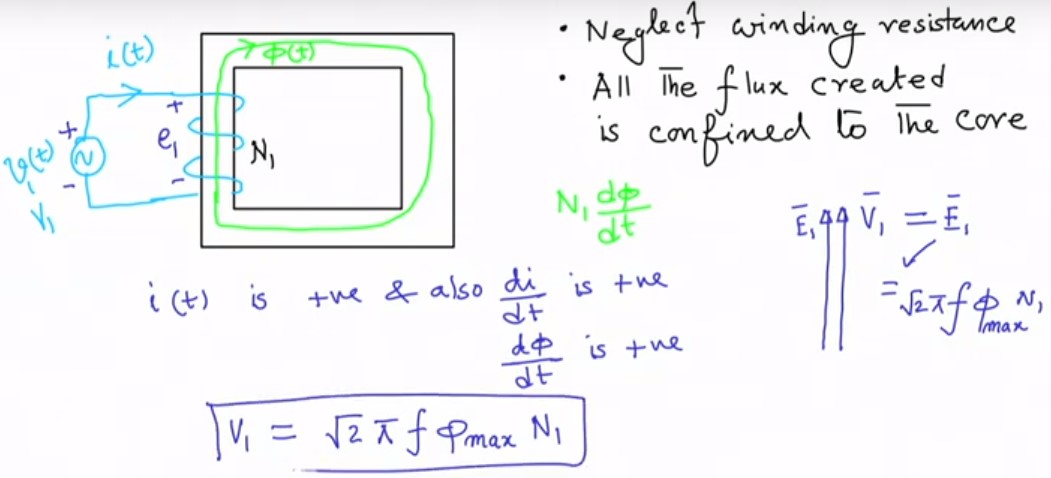 i(t)
ϕ(t)
+
e₁
-
N₁
+
v₁(t)
-
V₁
• Neglect winding resistance
• All The flux created
is confined to The core
N₁ dϕ/dt
Ē₁ V̄₁ = Ē₁
= √2 π f ϕmax N₁
i(t) is +ve & also di/dt is +ve
dϕ/dt is +ve
V₁ = √2 π f ϕmax N₁